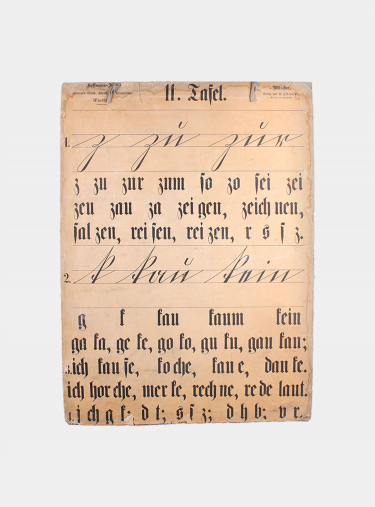 11. Tafel.
1. z zu zur
z zu zur zum so zo sei zei
zeu zau za zei gen, zeich nen,
sal zen, rei sen, rei zen, r s ſ z.
2. k kau kein
g k kau kaum kein
ga ka, ge ke, go ko, gu ku, gau kau;
ich kau fe, ko che, kau e, dan ke.
ich hor che, mer ke, rech ne, re de laut.
j ch g k; d t; s ſ z; d h b; v r.